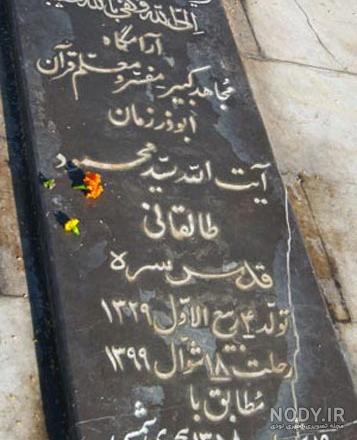 الی الله و فی
آرامگاه
مجاهد کبیر مفسر و معلم قرآن
ابوذر زمان
آیت الله سید محمود
طالقانی
قدس سره
تولد ۴ ربیع الاول ۱۳۲۹
رحلت ۱۸ شوال ۱۳۹۹
مطابق با
هجری شمسی
NODY.IR
مجله تصویری خبری نودی